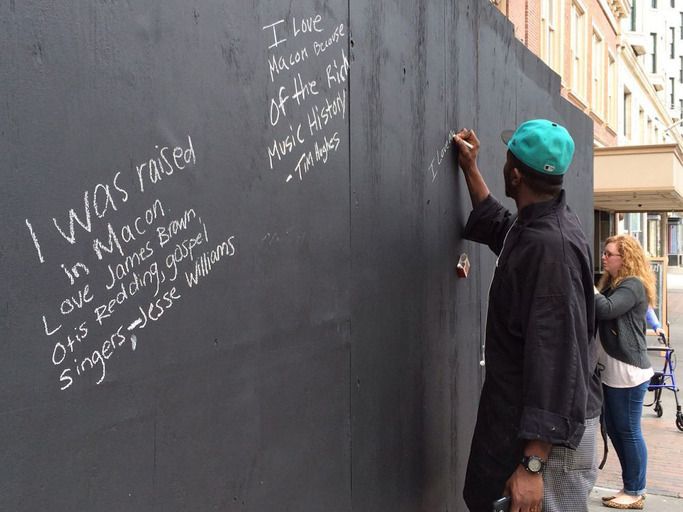 I was raised
in Macon.
Love James Brown,
Otis Redding, gospel
singers, -Jesse Williams
I Love
Macon Because
Of the Rich
Music History
- Tim Hughes
I Love